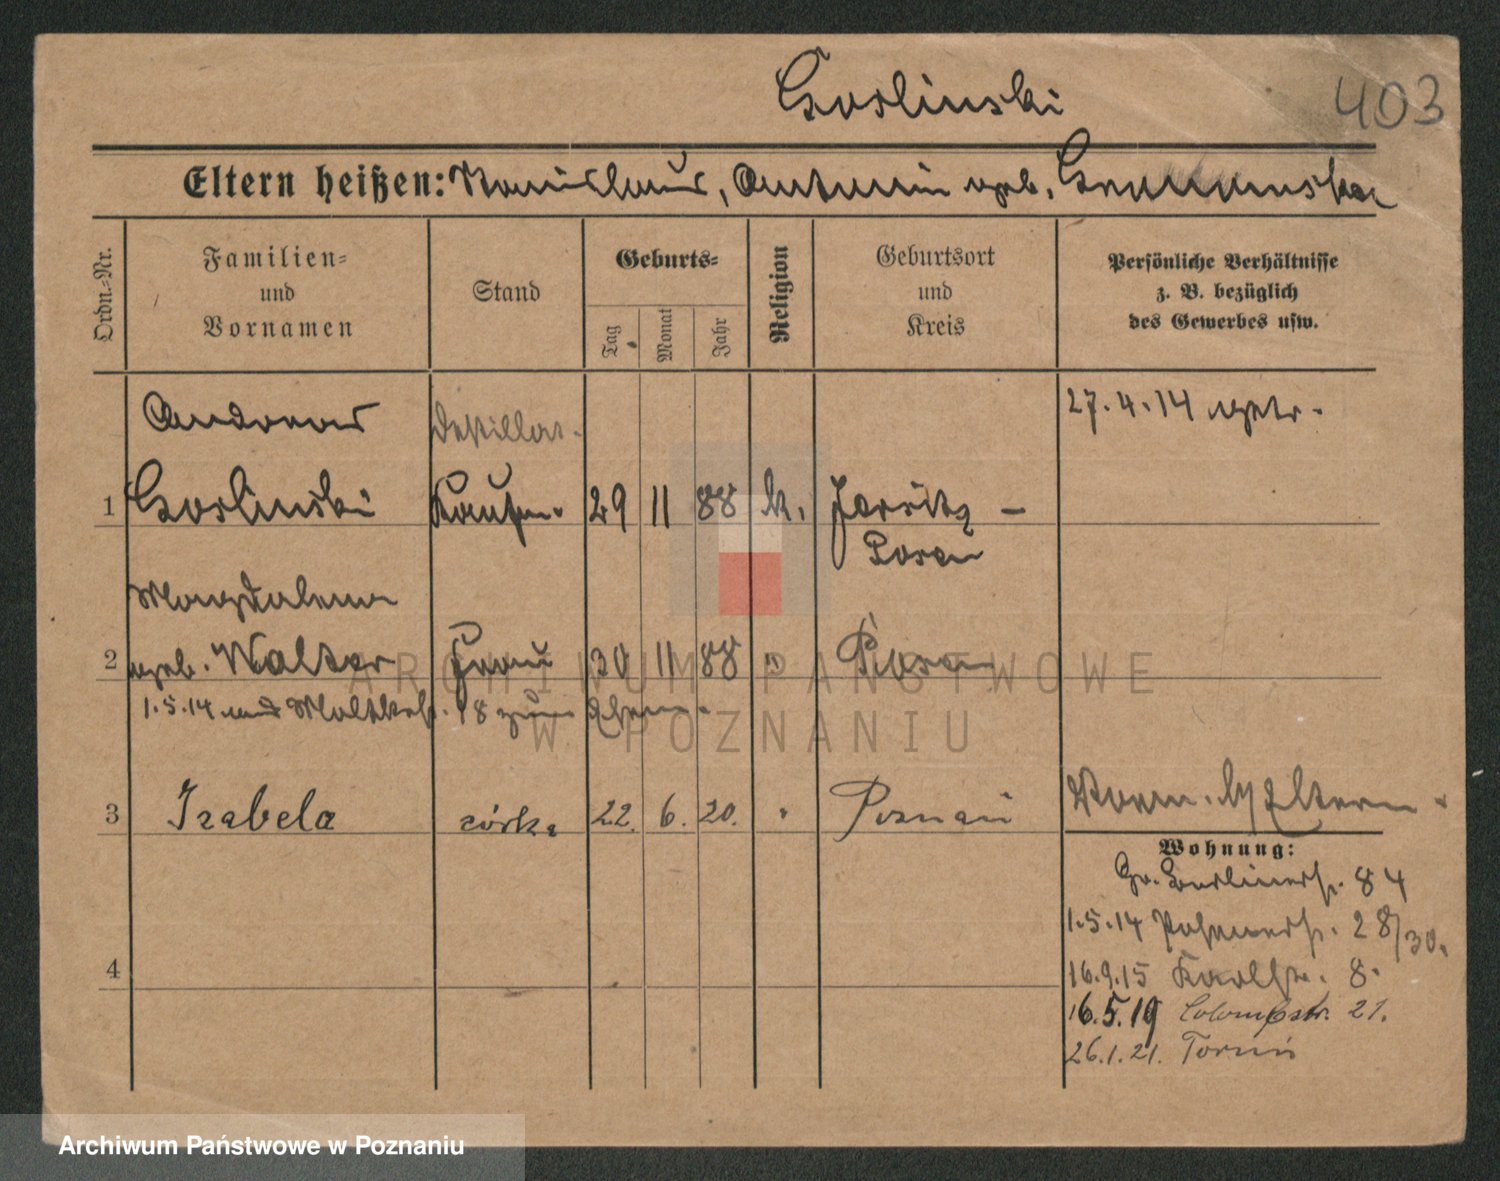 Goslinski
403
Eltern heißen: Stanislaus, Antonin geb.
Ordn.-Nr.
Familien=
und
Vornamen
Stand
Geburts=
Tag
Monat
Jahr
Religion
Geburtsort
und
Kreis
Persönliche Verhältnisse
z. B. bezüglich
des Gewerbes usw.
Andreas
Destillat.
27.4.14 getr.
1 Goslinski Kaufm. 29 11 88 k. Jersitz -
Posen
Magdalena
2 geb. Walter Frau 30 11 88 " Posen
1.5.14 18 zum
3 Izabela córka 22. 6. 20. " Poznań
Eltern
Wohnung:
Gr. Berlinerstr. 84
1.5.14 28/30.
16.9.15 Karlstr. 8.
4
16.5.19 Colombstr. 21.
26.1.21. Toruń
ARCHIWUM PAŃSTWOWE
W POZNANIU
Archiwum Państwowe w Poznaniu